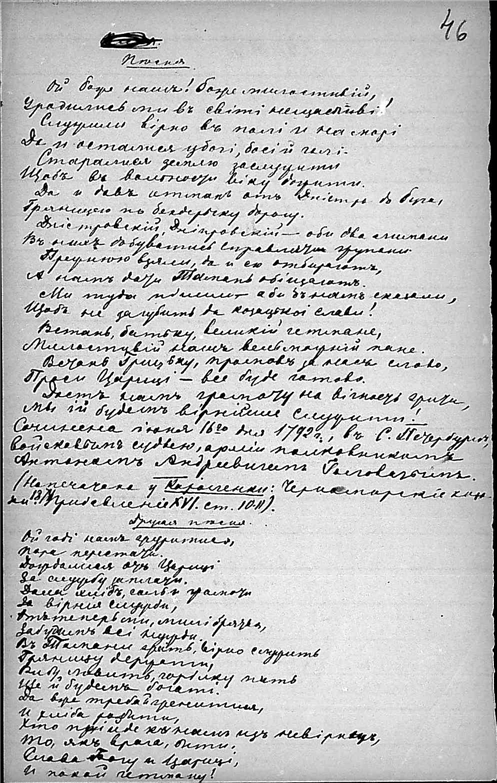 46
Пѣсня
Ой боже нашъ! боже милостивій,
Уродились мы въ світі нещасливі!
Служили вірно въ полі и на морі
Да и остались убогі, босі и голі.
Старалися землю заслужити
Щобъ въ вольности віку дожити.
Да и давъ гетманъ отъ Дністра до Буга,
Границею по бендерську дорогу.
Дністровскій, Дніпровскій обидва лимани
Въ нихъ добувались справляли жупани
Прежнюю взяли, да и сю отбирають,
А намъ дати Тамань обіщають.
Ми туди пішли аби намъ сказали,
Щобъ не загубить да козацької слави!
Встань, батьку, великій гетмане,
Милостивій нашъ вельможній пане.
Встань Грицьку, промовъ за насъ слово,
Проси Цариці — все буде готово.
Дасть намъ грамоту на вічность
Мы ій будемъ вірнійше служити
Сочинена іюня 16го дня 1792 г., въ С. Петербургѣ,
войсковымъ судьею, арміи полковникомъ
Антономъ Андреевичемъ Головатымъ.
(Напечатана у Короленки: Черноморскіе коза-
ки 1874 Прибавленіе XVI. ст.
Другая пѣсня.
Ой годі намъ журитися,
Пора перестати.
Дождалися отъ Цариці
За службу заплати.
Дала хлібъ, сіль и грамоти
За вірнія служби,
Отъ теперъ ми, милі братья,
Забудемъ всі нужди.
Въ Тамані жить, вірно служить
Границю держати,
Рибу ловить, горілку пить
Ще й будемъ богаті.
Да вже треба женитися,
И хліба робити,
Хто прійде къ намъ изъ невірныхъ
То, якъ врага, бити.
Слава Богу и Цариці,
И покой гетману!